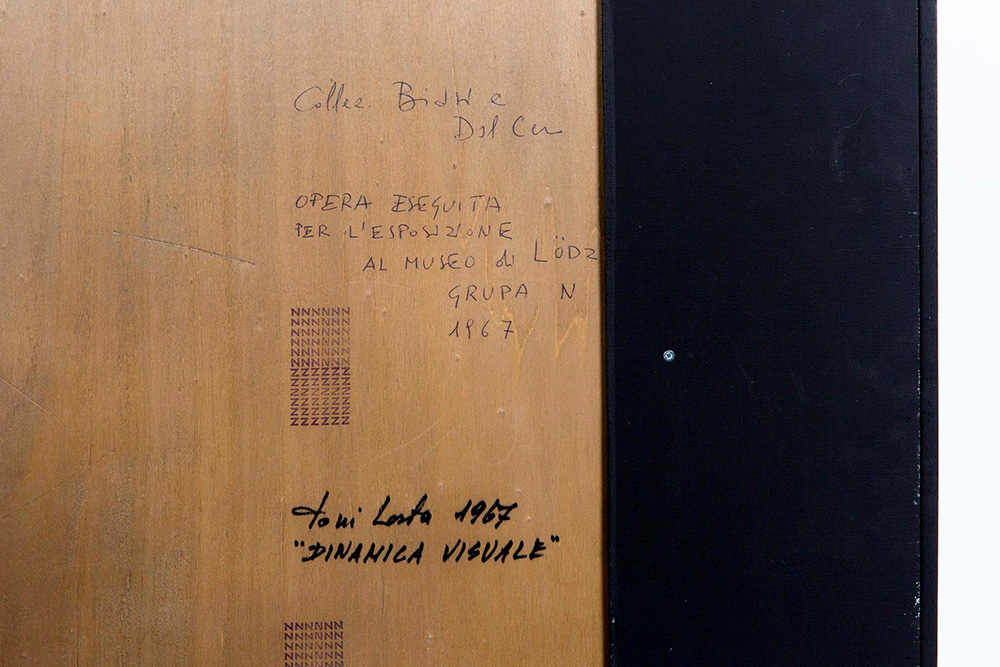 Collez.
OPERA ESEGUITA
PER L'ESPOSIZIONE
AL MUSEO di LÖDZ
GRUPA N
1967
NNNNNN
NNNNNN
NNNNNN
NNNNNN
NNNNNN
ZZZZZZ
ZZZZZZ
ZZZZZZ
ZZZZZZ
ZZZZZZ
toni Costa 1967
"DINAMICA VISUALE"
NNNNNN
NNNNNN
NNNNNN
NNNNNN